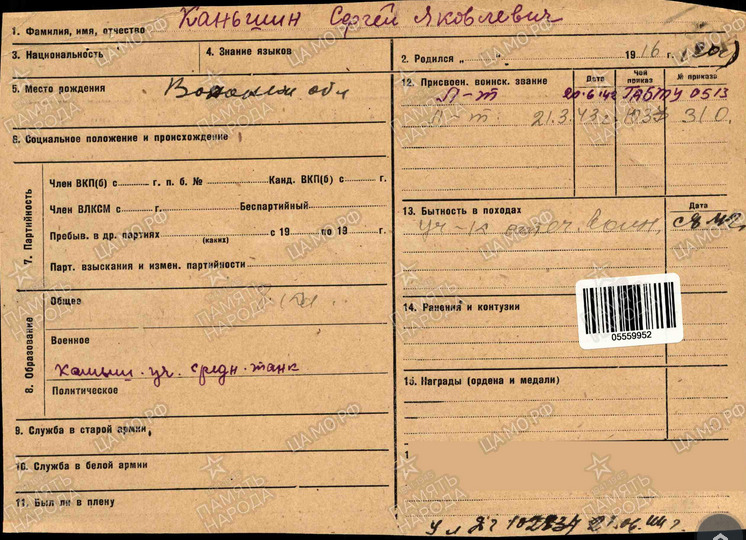 1. Фамилия, имя, отчество Каньшин Сергей Яковлевич
3. Национальность
4. Знание языков
2. Родился „ “ 1916 г.
5. Место рождения Воронеж обл
6. Социальное положение и происхождение
7. Партийность
Член ВКП(б) с г. п. б. № Канд. ВКП(б) с г.
Член ВЛКСМ с г. Беспартийный
Пребыв. в др. партиях с 19 по 19 г.
(каких)
Парт. взыскания и измен. партийности
8. Образование
Общее
Военное
Камыш. уч. средн. танк
Политическое
9. Служба в старой армии
10. Служба в белой армии
11. Был ли в плену
12. Присвоен. воинск. звание Дата Чей приказ № приказа
Л-т 20.6.42 ГАБТУ 0513
Л-т 21.3.43г. 310.
13. Бытность в походах Дата
Уч-к отеч. войн.
14. Ранения и контузии
05559952
15. Награды (ордена и медали)
1
21.06.44г.
ПАМЯТЬ НАРОДА
ЦАМО.РФ